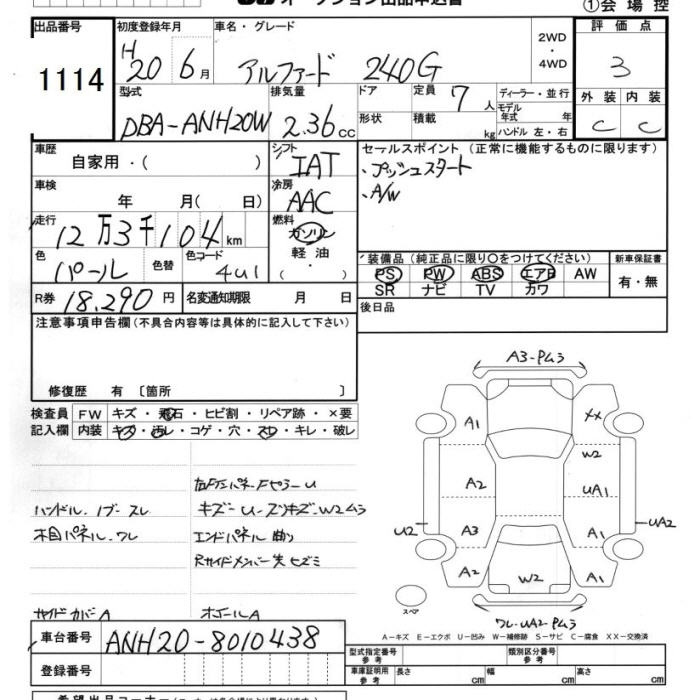 ①会 場 控
出品番号
1114
初度登録年月
H20 6月
車名・グレード
アルファード 240G
2WD・4WD
評 価 点
3
型式
DBA-ANH20W
排気量
2.36cc
ドア
形状
定員 7人
積載 kg
ディーラー・並行
モデル年式 年
ハンドル 左・右
外 装 内 装
C C
車歴
自家用・( )
シフト
IAT
セールスポイント (正常に機能するものに限ります)
・プッシュスタート
・A/W
車検
年 月( 日)
冷房
AAC
走行
12万3千104km
燃料
ガソリン
軽 油
・( )
色
パール
色替
色コード
4U1
装備品 (純正品に限り〇をつけてください)
PS PW ABS エアB AW
SR ナビ TV カワ
新車保証書
有・無
R券 18,290円
名変通知期限 月 日
後日品
注意事項申告欄 (不具合内容等は具体的に記入して下さい)
修復歴 有 〔箇所 〕
検査員 FW キズ・飛石・ヒビ割・リペア跡・×要
記入欄 内装 キズ・汚レ・コゲ・穴・スレ・キレ・破レ
ハンドル、ノブースレ
木目パネル、ワレ
キズーU-ズリキズ-W2ム3
エンドパネル 曲り
Rサイドメンバー先 ヒズミ
サイドカバーA
A3-PU3
A1
XX
W2
A2
UA1
U2
UA2
A3
A1
A2
W2
A1
スペア
ワレ-UA2-PU3
A-キズ E-エクボ U-凹み W-補修跡 S-サビ C-腐食 XX-交換済
車台番号 ANH20-8010438
登録番号
型式指定番号 参考
類別区分番号 参考
車庫証明用 参考 長さ cm 幅 cm 高さ cm